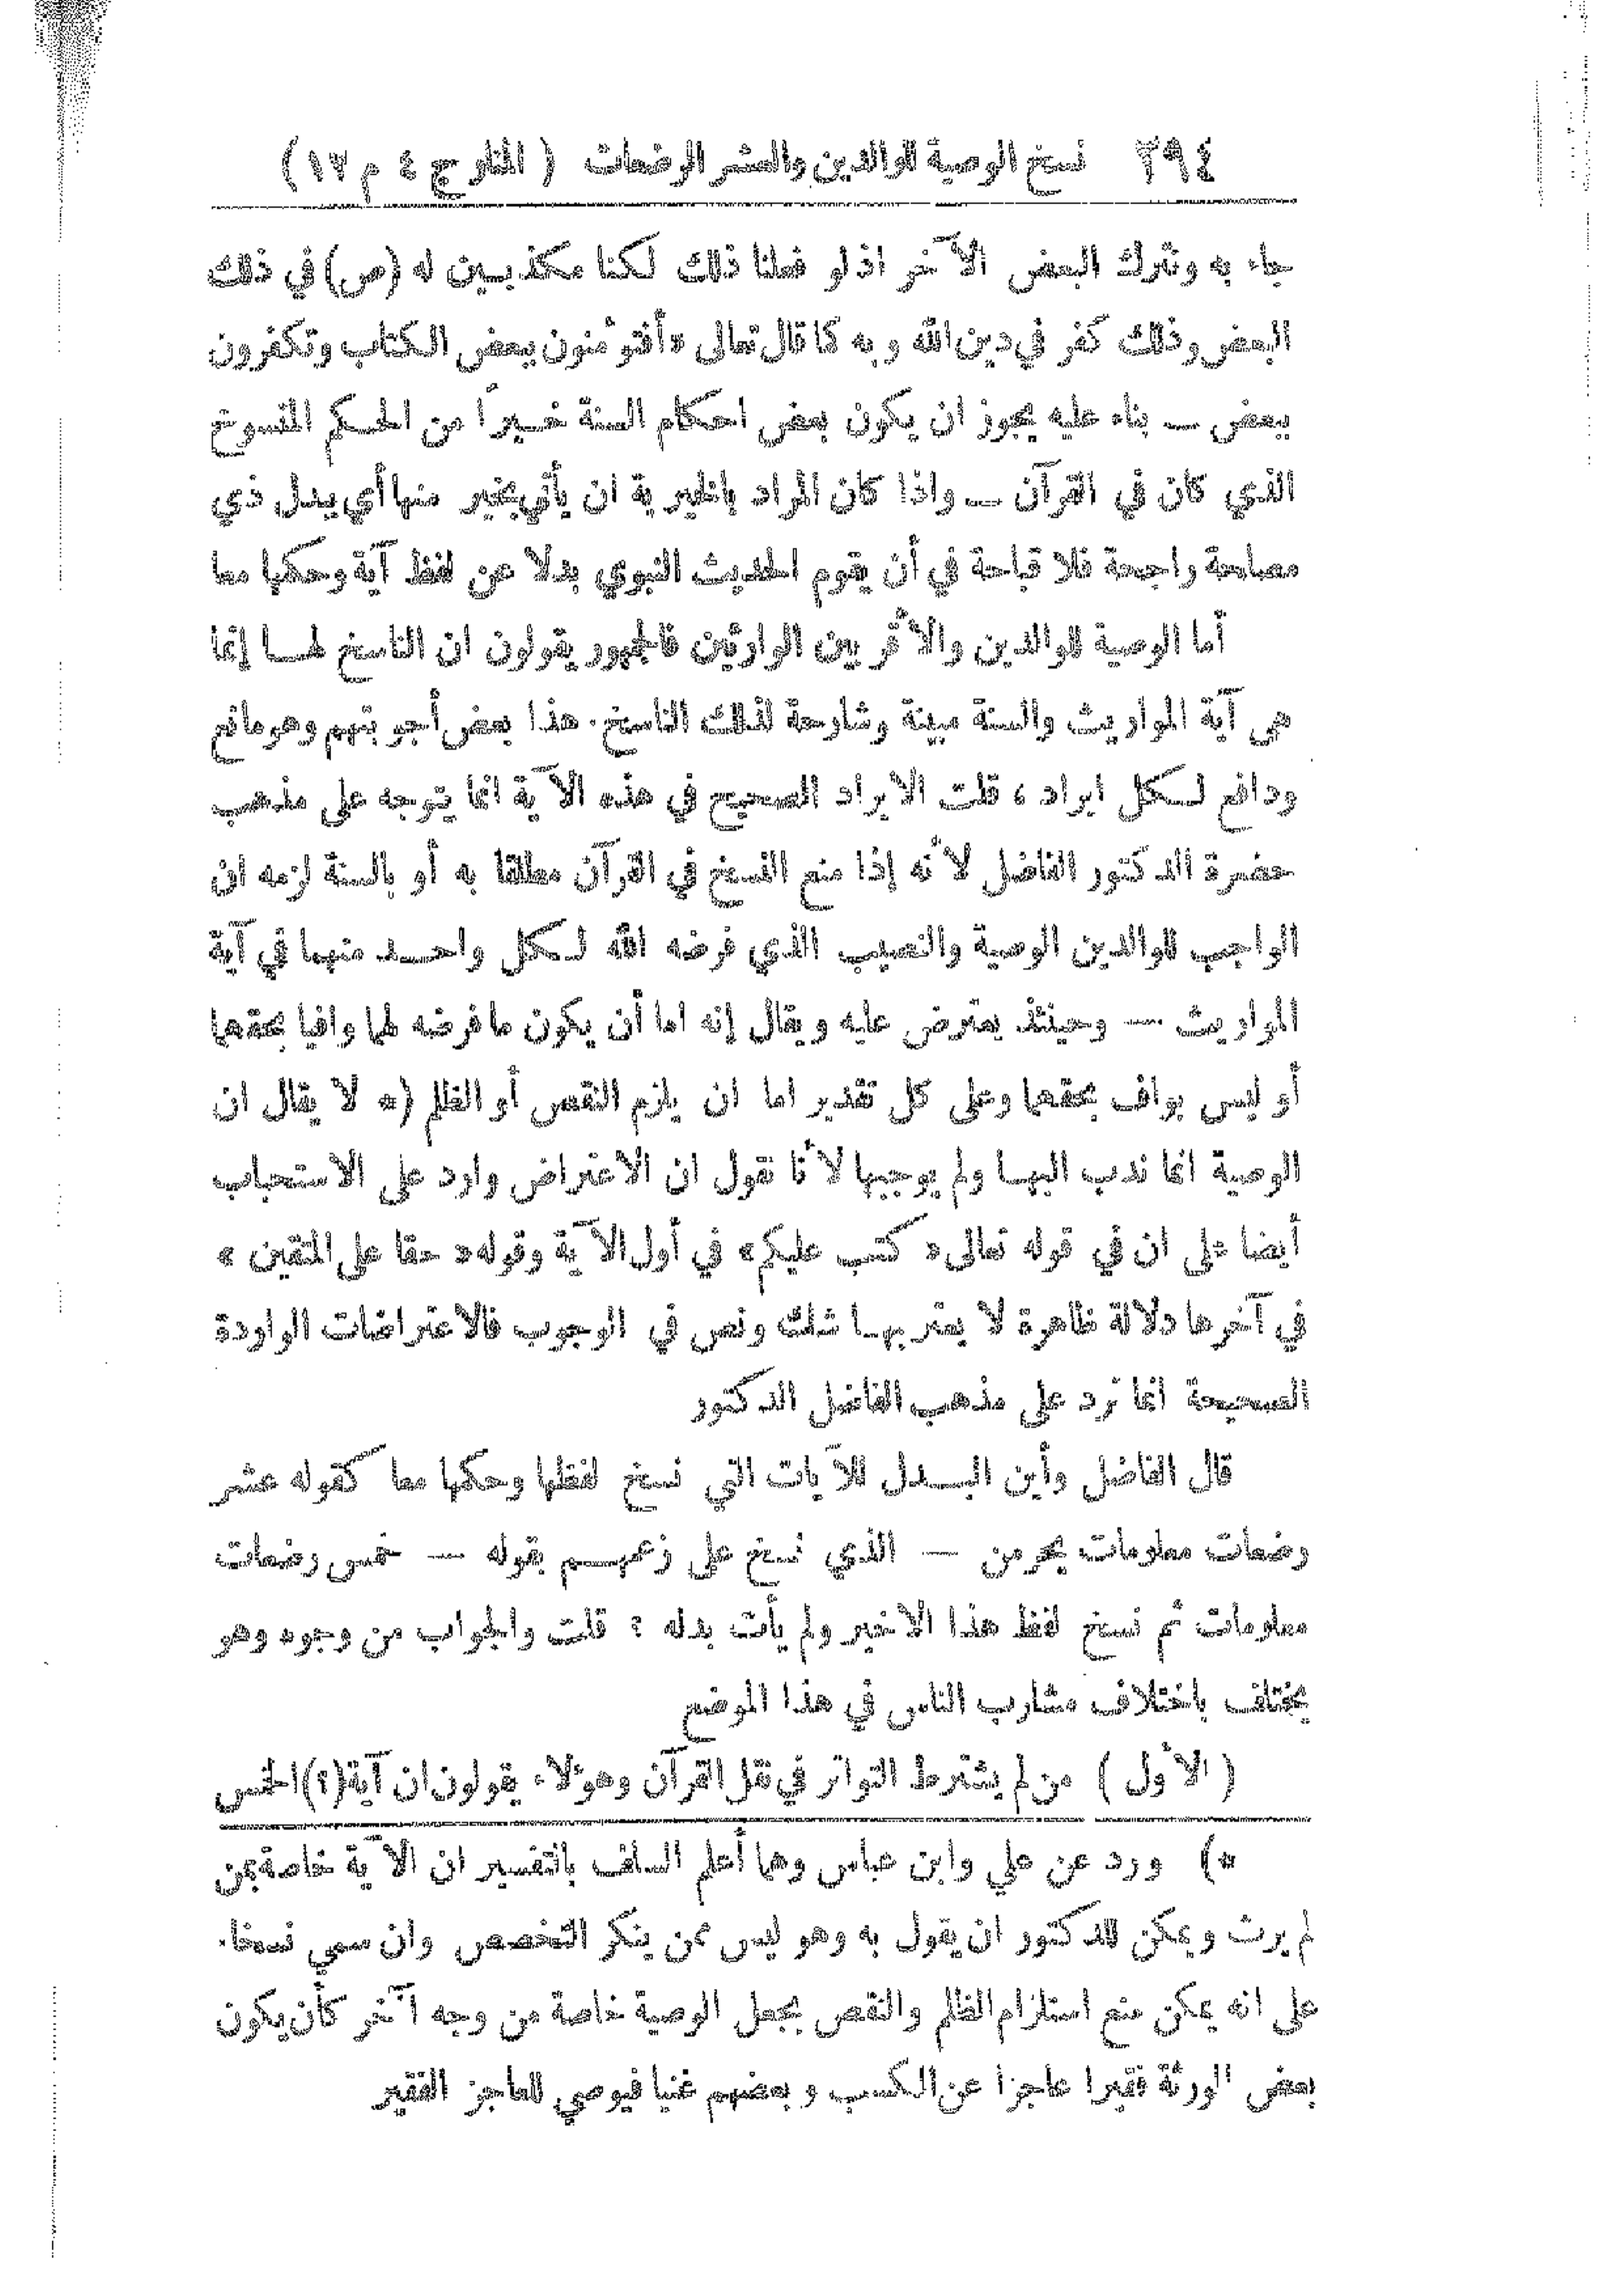 ٢٩٤ نسخ الوصية للوالدين والعشر الرضعات ( المنار ج ٤ م ١٢ )
جاء به ونترك البعض الآخر اذ لو فعلنا ذلك لكنا مكذبين له (ص) في ذلك
البعض وذلك كفر في دين الله وبه كما قال تعالى «أفتؤمنون ببعض الكتاب وتكفرون
ببعض — بناء عليه يجوز ان يكون بعض احكام السنة خيراً من الحكم المنسوخ
الذي كان في القرآن — واذا كان المراد بالخيرية ان يأتي بخير منها أي ببدل ذي
مصلحة راجحة فلا قباحة في أن يقوم الحديث النبوي بدلا عن لفظ آية وحكمها معا
أما الوصية للوالدين والأقربين الوارثين فالجمهور يقولون ان الناسخ لهـا إنما
هي آية المواريث والسنة مبينة وشارحة لذلك الناسخ. هذا بعض أجوبتهم وهو مانع
ودافع لكل ايراد ، قلت الايراد الصحيح في هذه الآية انما يتوجه على مذهب
حضرة الدكتور الفاضل لأنه إذا منع النسخ في القرآن مطلقا به أو بالسنة لزمه ان
الواجب للوالدين الوصية والنصيب الذي فرضه الله لكل واحد منهما في آية
المواريث — وحينئذ يعترض عليه ويقال إنه اما أن يكون ما فرضه لهما وافيا بحقهما
أو ليس بواف بحقهما وعلى كل تقدير اما ان يلزم النقص أو الظلم (* لا يقال ان
الوصية انما ندب اليهـا ولم يوجبها لأنا نقول ان الاعتراض وارد على الاستحباب
أيضا على ان في قوله تعالى « كتب عليكم » في أول الآية وقوله « حقا على المتقين »
في آخرها دلالة ظاهرة لا يعتريهـا شك ونص في الوجوب فالاعتراضات الواردة
الصحيحة انما ترد على مذهب الفاضل الدكتور
قال الفاضل وأين البـدل للآيات التي نسخ لفظها وحكمها معا كقوله عشر
رضعات معلومات يحرمن — الذي نسخ على زعمهـم بقوله — خمس رضعات
معلومات ثم نسخ لفظ هذا الاخير ولم يأت بدله : قلت والجواب من وجوه وهو
يختلف باختلاف مشارب الناس في هذا الموضع
( الأول ) من لم يشترط التواتر في نقل القرآن وهؤلاء يقولون ان آية(؟) الخمس
*) ورد عن علي وابن عباس وهما أعلم السلف بالتفسير ان الآية خاصة بمن
لم يرث ويمكن للدكتور ان يقول به وهو ليس ممن ينكر التخصص وان سمي نسخا.
على انه يمكن منع استلزام الظلم والنقص بجعل الوصية خاصة من وجه آخر كأن يكون
بعض الورثة فقيرا عاجزا عن الكسب وبعضهم غنيا فيوصي للعاجز الفقير